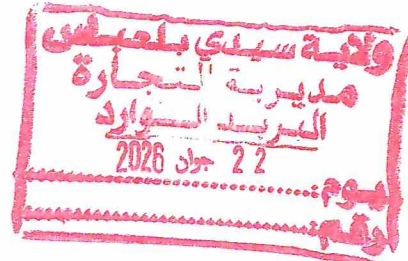 ولاية سيدي بلعباس
مديرية التجارة
البريد الوارد
22 جوان 2026
يوم:
رقم: